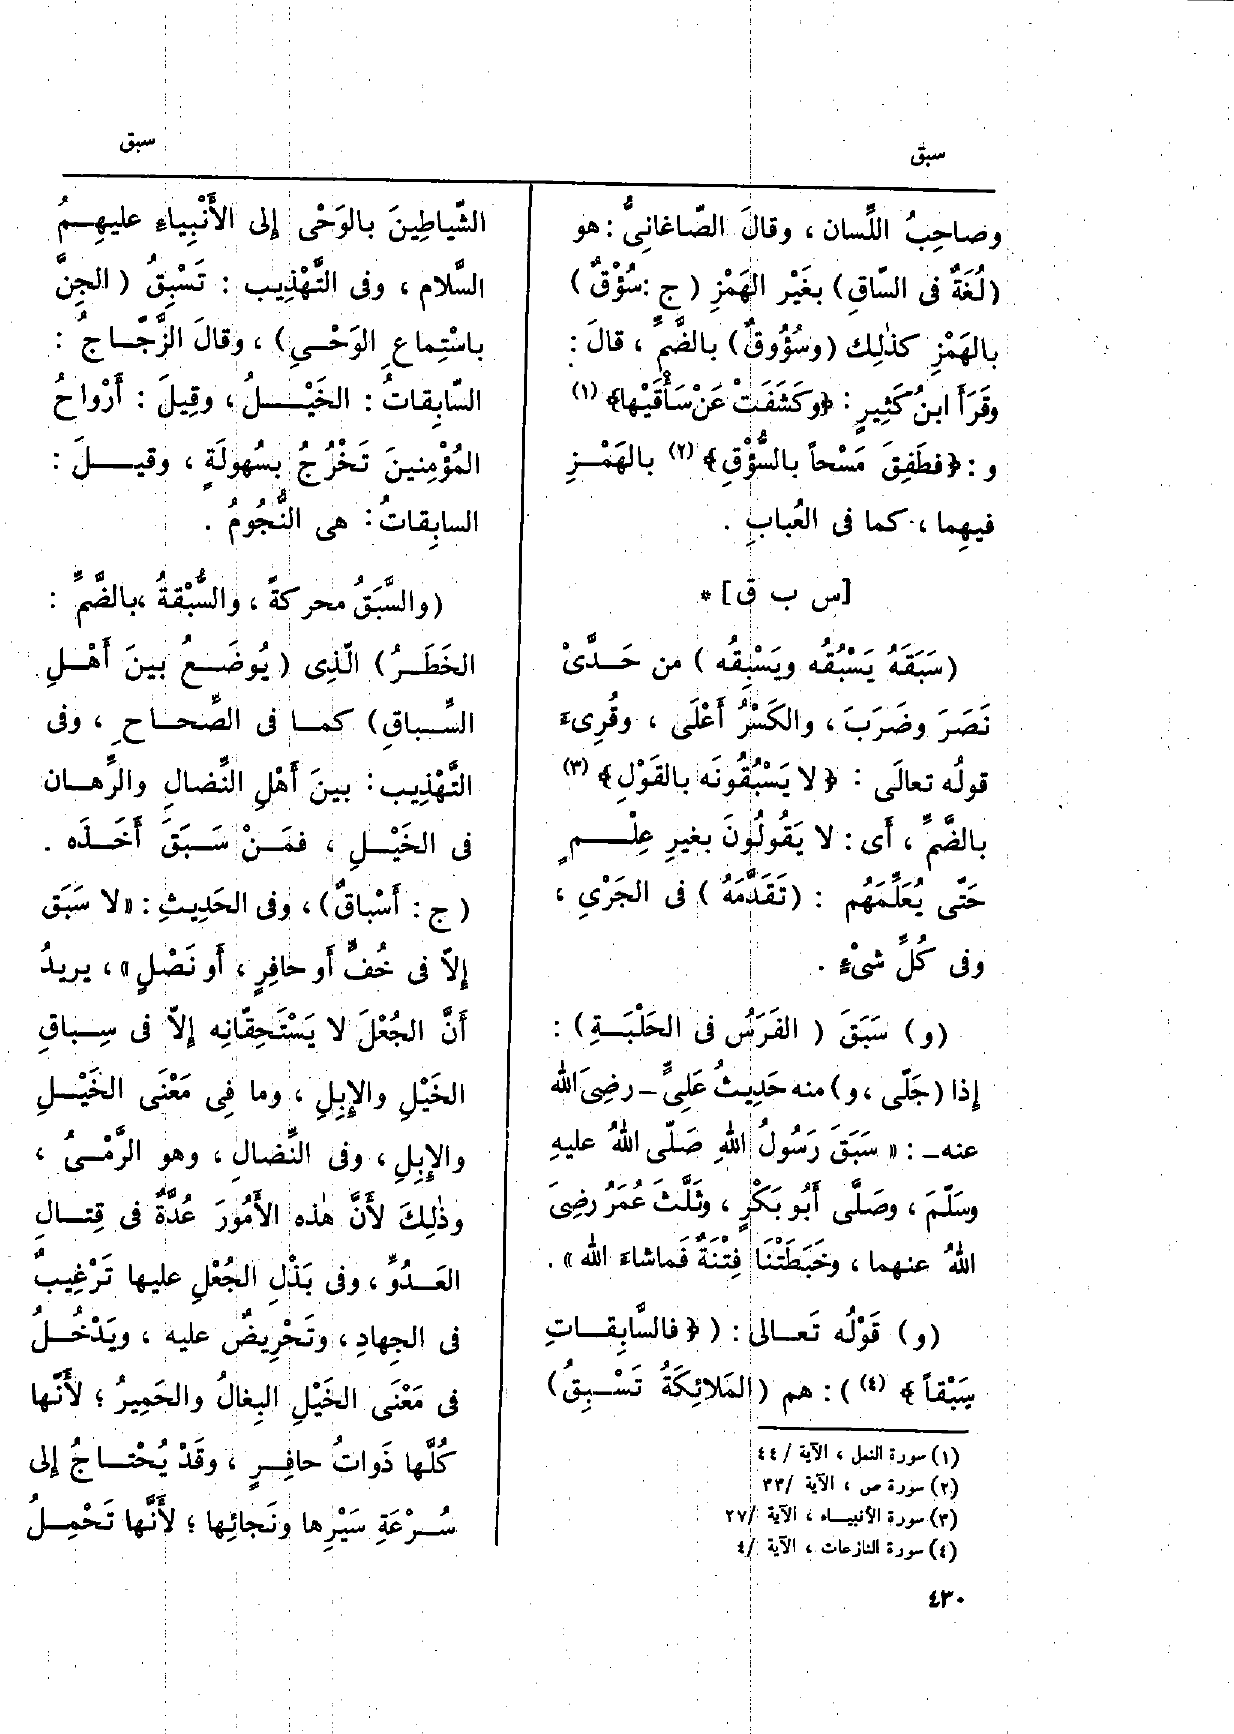 سبق
سبق
وصاحِبُ اللِّسان ، وقالَ الصّاغانِىُّ : هو
(لُغَةٌ فى السّاقِ) بغَيْر الهَمْزِ ( ج :سُؤْقٌ )
بالهَمْزِ كذٰلِك (وسُؤُوقٌ) بالضَّمِّ ، قالَ :
وقَرَأَ ابنُ كَثِيرٍ : ﴿وكَشَفَتْ عَنْ سَأْقَيْها﴾ (١)
و : ﴿فطَفِقَ مَسْحاً بالسُّؤْقِ﴾ (٢) بالهَمْـزِ
فيهِما ، كما فى العُبابِ .
[س ب ق] *
(سَبَقَهُ يَسْبُقُه ويَسْبِقُه ) من حَـدَّىْ
نَصَرَ وضَرَبَ ، والكَسْرُ أَعْلَى ، وقُرِىءَ
قولُه تعالَى : ﴿ لا يَسْبُقُونَه بالقَوْلِ﴾ (٣)
بالضَّمِّ ، أَى : لا يَقُولُونَ بغيرِ عِلْـــمٍ
حَتّى يُعَلِّمَهُم : (تَقَدَّمَهُ ) فى الجَرْىِ ،
وفى كُلِّ شىْءٍ .
(و) سَبَقَ ( الفَرَسُ فى الحَلْبَـةِ ) :
إِذا (جَلَّى ، و) منه حَدِيثُ عَلِىٍّ – رضِىَ الله
عنه – : « سَبَقَ رَسُولُ اللهِ صَلّى اللهُ عليهِ
وسَلّمَ ، وصَلَّى أَبُو بَكْرٍ ، وثَلَّثَ عُمَرُ رضِىَ
اللهُ عنهما ، وخَبَطَتْنَا فِتْنَةٌ فَماشاءَ الله » .
(و) قَوْلُه تَعـالى : ( ﴿ فالسَّابِقـاتِ
سَبْقاً ﴾ (٤) ) : هم (المَلائِكَةُ تَسْـبِقُ)
(١) سورة النمل ، الآية /٤٤
(٢) سورة ص ، الآية /٣٣
(٣) سورة الأنبيـاء ، الآية /٢٧
(٤) سورة النازعات ، الآية /٤
الشَّياطِينَ بالوَحْىِ إِلى الأَنْبِياءِ عليهِـمُ
السَّلام ، وفى التَّهْذِيب : تَسْبِقُ ( الجِنَّ
باسْتِماعِ الوَحْـىِ) ، وقالَ الزَّجّـاجُ :
السّابِقاتُ : الخَيْـــلُ ، وقِيلَ : أَرْواحُ
المُؤْمِنِينَ تَخْرُجُ بسُهولَةٍ ، وقيـــلَ :
السابِقاتُ : هى النُّجُومُ .
(والسَّبَقُ محركةً ، والسُّبْقةُ ،بالضَّمِّ :
الخَطَـرُ) الَّذِى ( يُوضَـــعُ بينَ أَهْـلِ
السِّـباقِ) كمـا فى الصِّحـاحِ ، وفى
التَّهْذِيب : بينَ أَهْلِ النِّضالِ والرِّهـان
فى الخَيْـلِ ، فمَـنْ سَـبَقَ أَخَـذَه .
( ج : أَسْباقٌ) ، وفى الحَدِيثِ : «لا سَبَقَ
إِلاّ فى خُفٍّ أَو حافِرٍ ، أَو نَصْلٍ » ، يريدُ
أَنَّ الجُعْلَ لا يَسْتَحِقّانِه إِلاّ فى سِـباقِ
الخَيْلِ والإِبِلِ ، وما فِى مَعْنَى الخَيْـلِ
والإِبِلِ ، وفى النِّضالِ ، وهو الرَّمْـىُ ،
وذٰلِكَ لأَنَّ هٰذه الأُمُورَ عُدَّةٌ فى قِتـالِ
العَـدُوِّ ، وفى بَذْلِ الجُعْلِ عليها تَرْغِيبٌ
فى الجِهادِ ، وتَحْرِيضٌ عليه ، ويَدْخُـلُ
فى مَعْنَى الخَيْلِ البِغالُ والحَمِيرُ ؛ لأَنَّها
كُلَّها ذَواتُ حافِـرٍ ، وقَدْ يُحْتـاجُ إِلى
سُـرْعَةِ سَيْرِها ونَجائِها ؛ لأَنَّها تَحْمِـلُ
٤٣٠